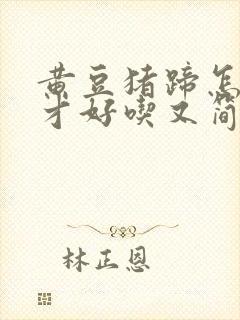 黄豆猪蹄怎
才好喫又简
林正恩